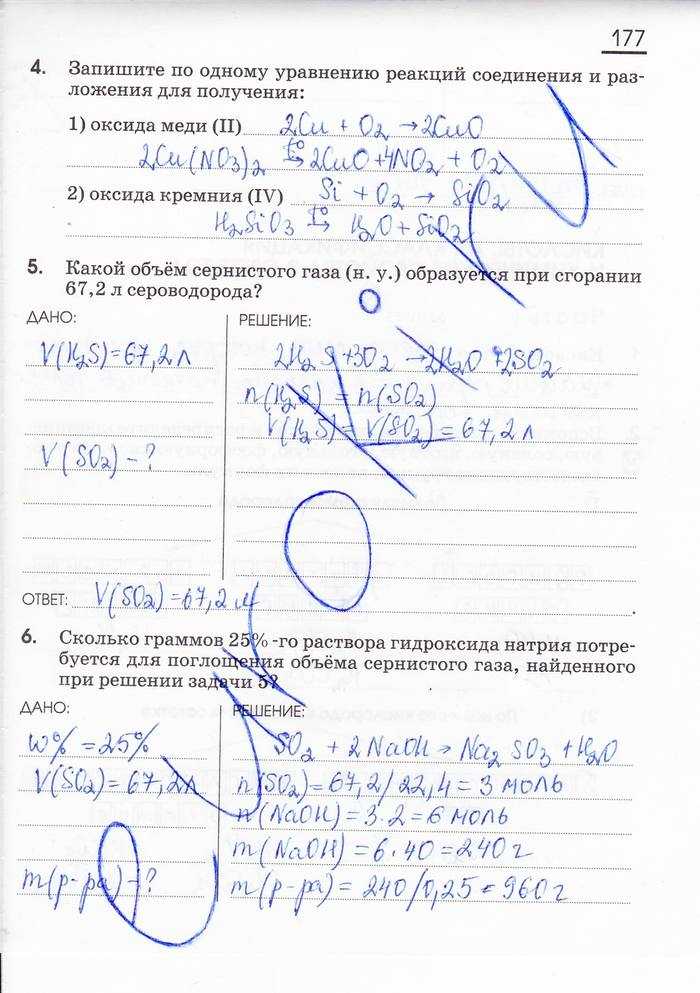 177
4. Запишите по одному уравнению реакций соединения и раз-
ложения для получения:
1) оксида меди (II) 2Cu + O₂ → 2CuO
2Cu(NO₃)₂ t°→ 2CuO + 4NO₂ + O₂
2) оксида кремния (IV) Si + O₂ → SiO₂
H₂SiO₃ t°→ H₂O + SiO₂
5. Какой объём сернистого газа (н. у.) образуется при сгорании
67,2 л сероводорода?
ДАНО:
V(H₂S) = 67,2 л
V(SO₂) – ?
РЕШЕНИЕ:
2H₂S + 3O₂ → 2H₂O + 2SO₂
n(H₂S) = n(SO₂)
V(H₂S) = V(SO₂) = 67,2 л
ОТВЕТ: V(SO₂) = 67,2 л
6. Сколько граммов 25%-го раствора гидроксида натрия потре-
буется для поглощения объёма сернистого газа, найденного
при решении задачи 5?
ДАНО:
w% = 25%
V(SO₂) = 67,2 л
m(р-ра) – ?
РЕШЕНИЕ:
SO₂ + 2NaOH → Na₂SO₃ + H₂O
n(SO₂) = 67,2/22,4 = 3 моль
n(NaOH) = 3·2 = 6 моль
m(NaOH) = 6·40 = 240 г
m(р-ра) = 240/0,25 = 960 г